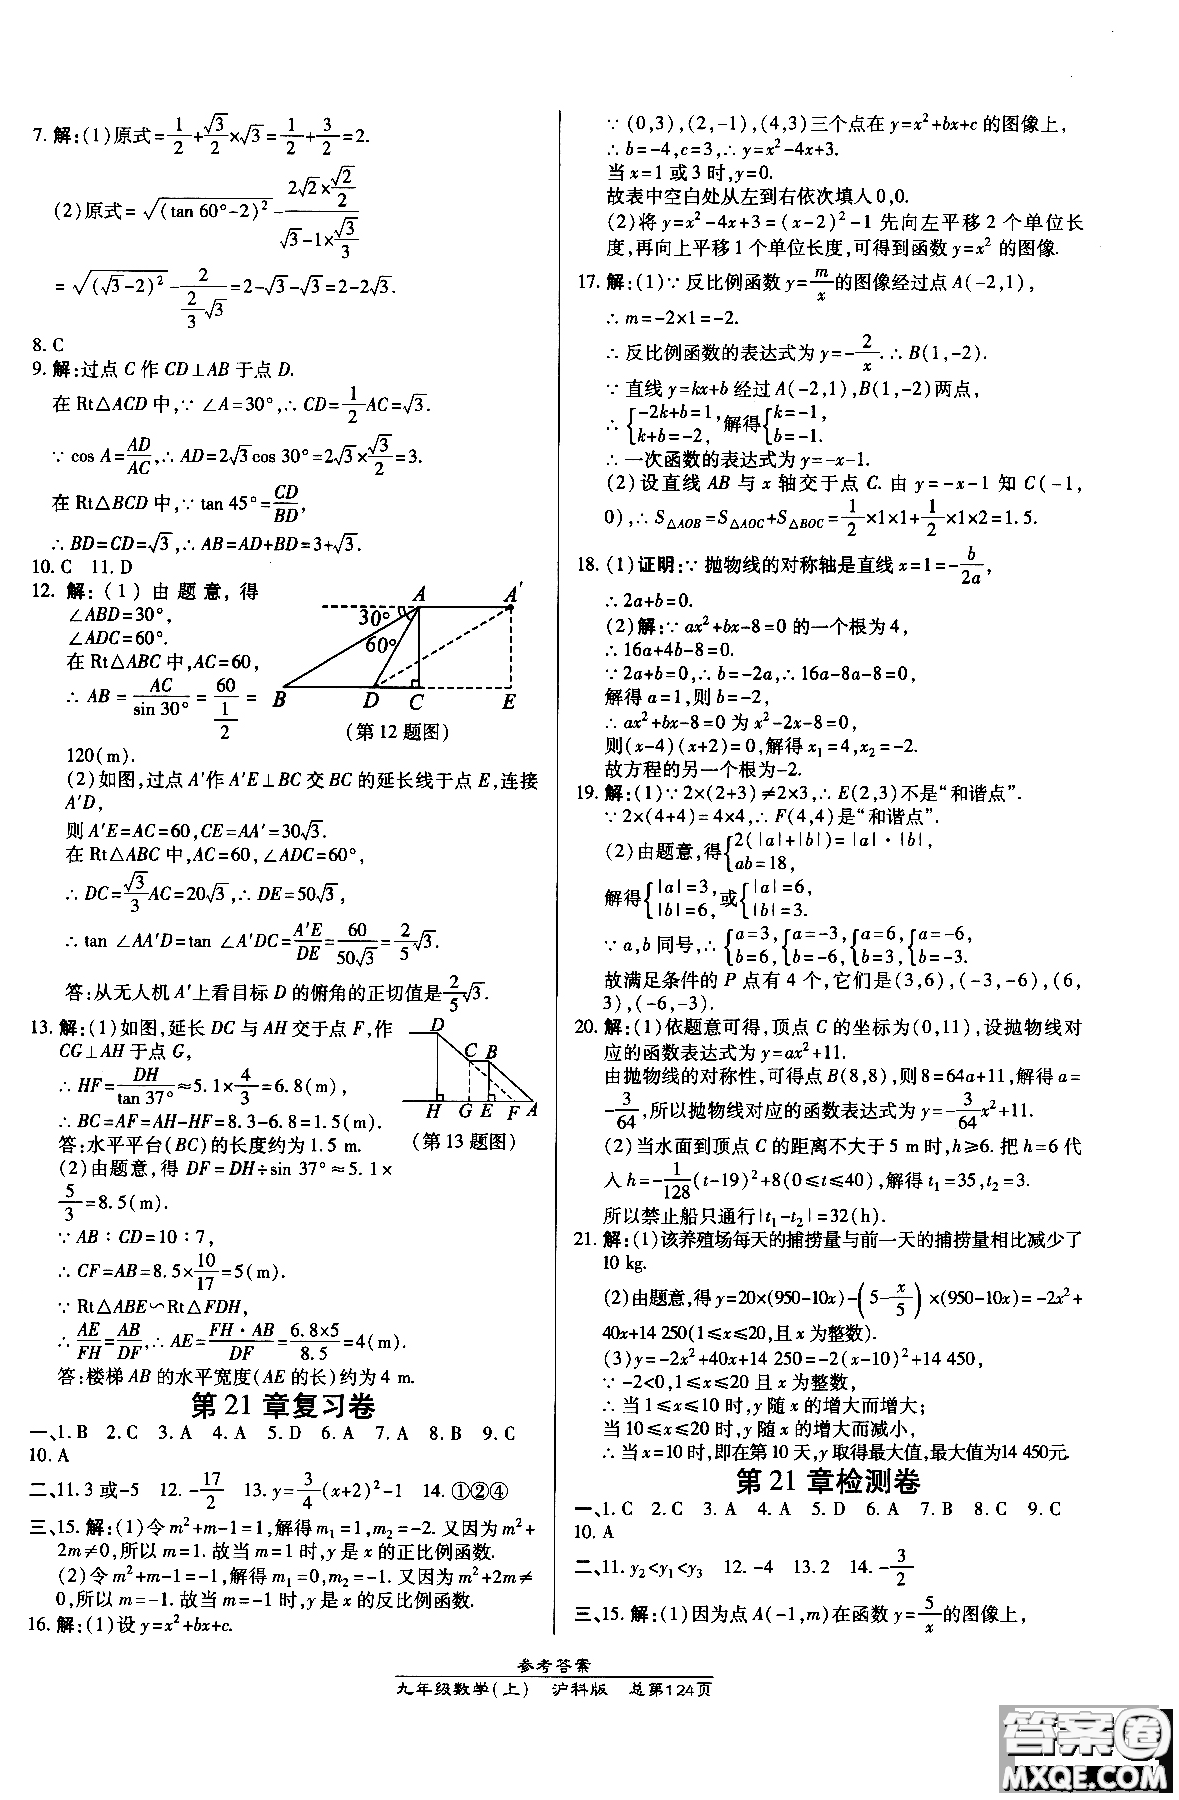 7. 解:(1)原式=1/2+√3/2×√3=1/2+3/2=2.
(2)原式=√((tan 60°-2)²)-(2√2×√2/2)/(√3-1×√3/3)
=√((√3-2)²)-2/(2/3 √3)=2-√3-√3=2-2√3.
8. C
9. 解:过点 C 作 CD⊥AB 于点 D.
在 Rt△ACD 中,∵∠A=30°,∴CD=1/2 AC=√3.
∵cos A=AD/AC,∴AD=2√3 cos 30°=2√3×√3/2=3.
在 Rt△BCD 中,∵tan 45°=CD/BD,
∴BD=CD=√3,∴AB=AD+BD=3+√3.
10. C 11. D
12. 解:(1)由题意,得
∠ABD=30°,
∠ADC=60°.
在 Rt△ABC 中,AC=60,
∴AB=AC/sin 30°=60/(1/2)=
120(m).
A A′
30°
60°
B D C E
(第 12 题图)
(2)如图,过点 A′作 A′E⊥BC 交 BC 的延长线于点 E,连接
A′D,
则 A′E=AC=60,CE=AA′=30√3.
在 Rt△ABC 中,AC=60,∠ADC=60°,
∴DC=√3/3 AC=20√3,∴DE=50√3.
∴tan ∠AA′D=tan ∠A′DC=A′E/DE=60/(50√3)=2/5 √3.
答:从无人机 A′上看目标 D 的俯角的正切值是2/5 √3.
13. 解:(1)如图,延长 DC 与 AH 交于点 F,作
CG⊥AH 于点 G,
∴HF=DH/tan 37°≈5.1×4/3=6.8(m),
∴BC=AF=AH-HF=8.3-6.8=1.5(m).
答:水平平台(BC)的长度约为 1.5 m.
D
C B
H G E F A
(第 13 题图)
(2)由题意,得 DF=DH÷sin 37°≈5.1×
5/3=8.5(m).
∵AB∶CD=10∶7,
∴CF=AB=8.5×10/17=5(m).
∵Rt△ABE∽Rt△FDH,
∴AE/FH=AB/DF,∴AE=FH·AB/DF=6.8×5/8.5=4(m).
答:楼梯 AB 的水平宽度(AE 的长)约为 4 m.
第 21 章复习卷
一、1. B 2. C 3. A 4. A 5. D 6. A 7. A 8. B 9. C
10. A
二、11. 3 或-5 12. -17/2 13. y=3/4(x+2)²-1 14. ①②④
三、15. 解:(1)令 m²+m-1=1,解得 m₁=1,m₂=-2. 又因为 m²+
2m≠0,所以 m=1. 故当 m=1 时,y 是 x 的正比例函数.
(2)令 m²+m-1=-1,解得 m₁=0,m₂=-1. 又因为 m²+2m≠
0,所以 m=-1. 故当 m=-1 时,y 是 x 的反比例函数.
16. 解:(1)设 y=x²+bx+c.
∵(0,3),(2,-1),(4,3)三个点在 y=x²+bx+c 的图像上,
∴b=-4,c=3,∴y=x²-4x+3.
当 x=1 或 3 时,y=0.
故表中空白处从左到右依次填人 0,0.
(2)将 y=x²-4x+3=(x-2)²-1 先向左平移 2 个单位长
度,再向上平移 1 个单位长度,可得到函数 y=x² 的图像.
17. 解:(1)∵反比例函数 y=m/x的图像经过点 A(-2,1),
∴m=-2×1=-2.
∴反比例函数的表达式为 y=-2/x.∴B(1,-2).
∵直线 y=kx+b 经过 A(-2,1),B(1,-2)两点,
∴{-2k+b=1, k+b=-2, 解得{k=-1, b=-1.
∴一次函数的表达式为 y=-x-1.
(2)设直线 AB 与 x 轴交于点 C. 由 y=-x-1 知 C(-1,
0),∴S△AOB=S△AOC+S△BOC=1/2×1×1+1/2×1×2=1.5.
18. (1)证明:∵抛物线的对称轴是直线 x=1=-b/2a,
∴2a+b=0.
(2)解:∵ax²+bx-8=0 的一个根为 4,
∴16a+4b-8=0.
∵2a+b=0,∴b=-2a,∴16a-8a-8=0,
解得 a=1,则 b=-2,
∴ax²+bx-8=0 为 x²-2x-8=0,
则(x-4)(x+2)=0,解得 x₁=4,x₂=-2.
故方程的另一个根为-2.
19. 解:(1)∵2×(2+3)≠2×3,∴E(2,3)不是“和谐点”.
∵2×(4+4)=4×4,∴F(4,4)是“和谐点”.
(2)由题意,得{2(|a|+|b|)=|a|·|b|, ab=18,
解得{|a|=3, |b|=6, 或{|a|=6, |b|=3.
∵a,b 同号,∴{a=3, b=6, {a=-3, b=-6, {a=6, b=3, {a=-6, b=-3.
故满足条件的 P 点有 4 个,它们是(3,6),(-3,-6),(6,
3),(-6,-3).
20. 解:(1)依题意可得,顶点 C 的坐标为(0,11),设抛物线对
应的函数表达式为 y=ax²+11.
由抛物线的对称性,可得点 B(8,8),则 8=64a+11,解得 a=
-3/64,所以抛物线对应的函数表达式为 y=-3/64 x²+11.
(2)当水面到顶点 C 的距离不大于 5 m 时,h≥6. 把 h=6 代
入 h=-1/128(t-19)²+8(0≤t≤40),解得 t₁=35,t₂=3.
所以禁止船只通行|t₁-t₂|=32(h).
21. 解:(1)该养殖场每天的捕捞量与前一天的捕捞量相比减少了
10 kg.
(2)由题意,得 y=20×(950-10x)-(5-x/5)×(950-10x)=-2x²+
40x+14 250(1≤x≤20,且 x 为整数).
(3)y=-2x²+40x+14 250=-2(x-10)²+14 450,
∵-2<0,1≤x≤20 且 x 为整数,
∴当 1≤x≤10 时,y 随 x 的增大而增大;
当 10≤x≤20 时,y 随 x 的增大而减小,
∴当 x=10 时,即在第 10 天,y 取得最大值,最大值为14 450元.
第 21 章检测卷
一、1. C 2. C 3. A 4. A 5. D 6. A 7. B 8. C 9. C
10. A
二、11. y₂<y₁<y₃ 12. -4 13. 2 14. -3/2
三、15. 解:(1)因为点 A(-1,m)在函数 y=5/x的图像上,
参考答案
九年级数学(上) 沪科版 总第124页
答案卷
MXQE.COM